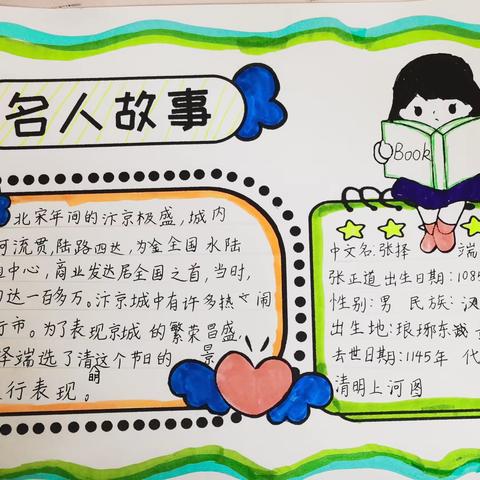 名人故事
Book
北宋年间的汴京极盛,城内
河流贯,陆路四达,为全国水陆
中心,商业发达居全国之首,当时,
达一百多万。汴京城中有许多热闹
行市。为了表现京城的繁荣昌盛,
择端选了清明这个节日的景
行表现。
中文名:张择端
张正道 出生日期:1085
性别:男 民族:汉
出生地:琅琊东
去世日期:1145年 代
清明上河图